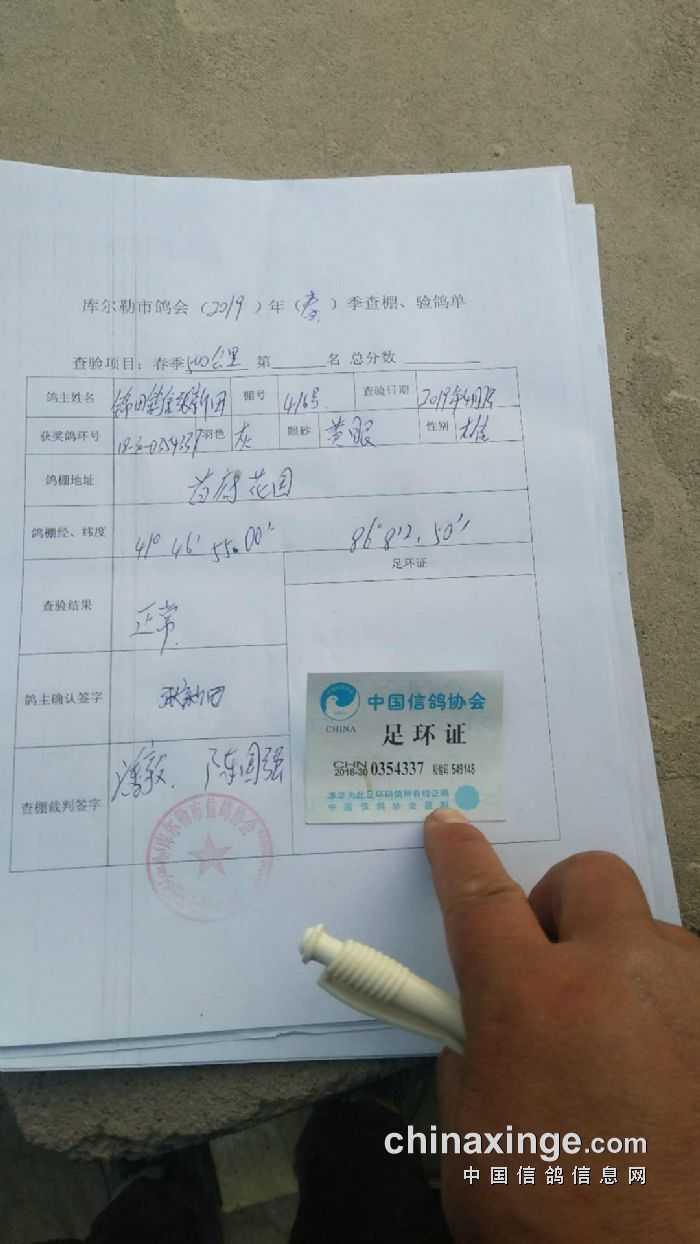 库尔勒市鸽会（2019）年（春）季查棚、验鸽单
查验项目：春季500公里 第 名 总分数
鸽主姓名 棚号 416号 查验日期 2019年
获奖鸽环号 羽色 灰 眼砂 黄眼 性别 雄
鸽棚地址 首府花园
鸽棚经、纬度 41° 46′ 55.00″ 86° 8′12.50″
查验结果 正常 足环证
鸽主确认签字 张新田
查棚裁判签字 陈国强
库尔勒市信鸽协会
中国信鸽协会
CHINA 足环证
CHN
2018-30 0354337 校验码 549148
本证为此足环码信鸽所有权证明
中国信鸽协会监制
chinaxinge.com
中国信鸽信息网